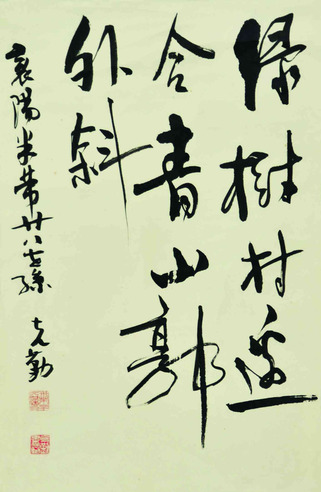 绿樹村邊
合青山郭
外斜
襄陽米芾廿八世孫 克勤